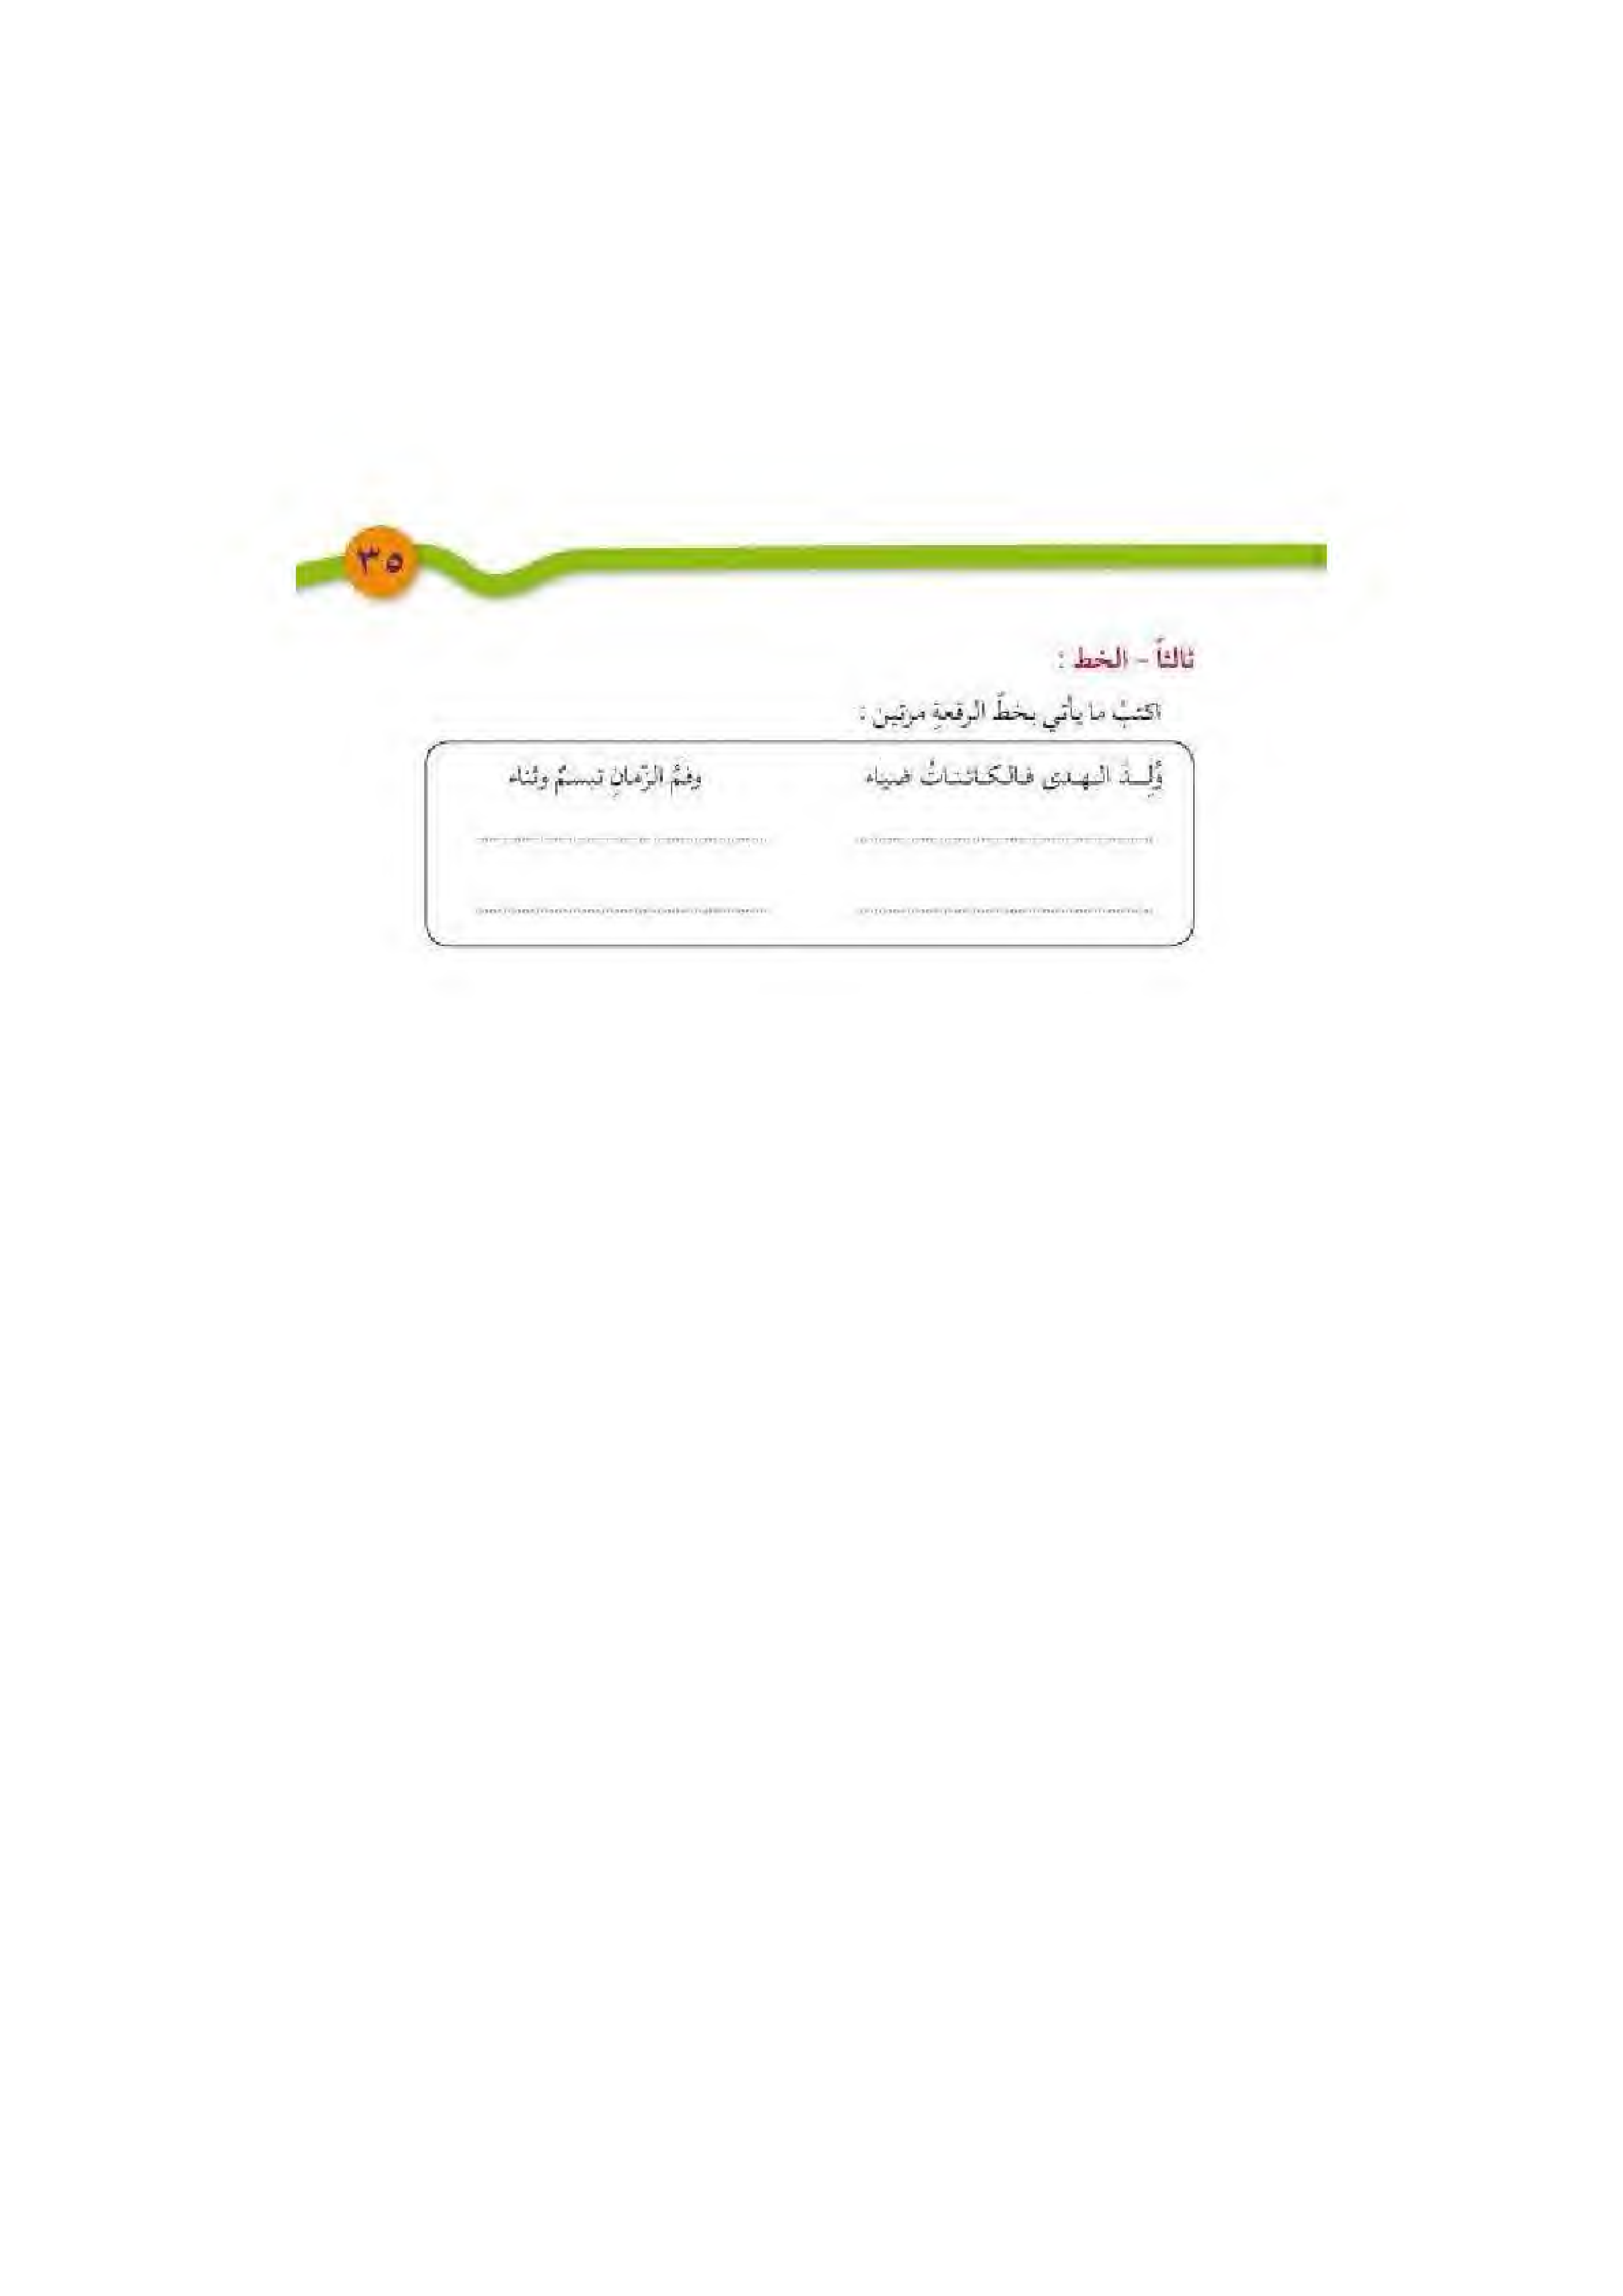 ٣٥
ثالثاً - الخط :
اكتبْ ما يأتي بخطّ الرقعةِ مرتين :
وُلِـــدَ الـهـدى فـالـكـائـنـاتُ ضـيـاء وفمُ الزّمانِ تبسمٌ وثناء